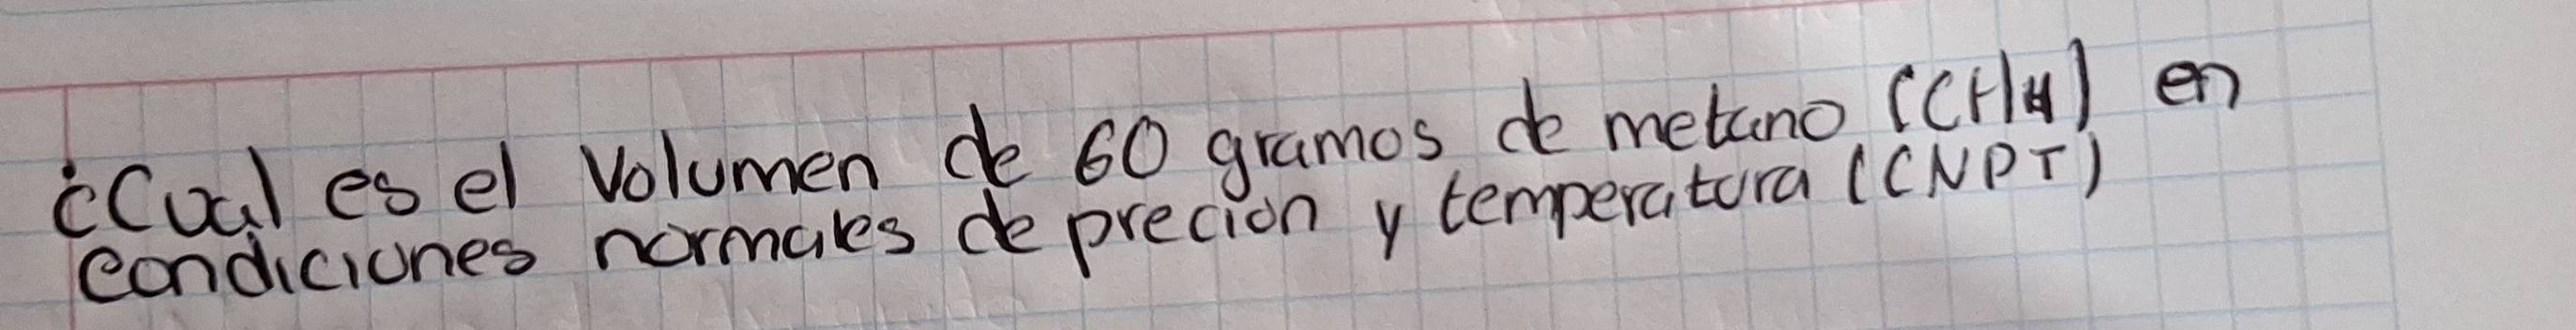 ¿Cual es el Volumen de 60 gramos de metano (CH4) en
condiciones normales de precion y temperatura (CNPT)